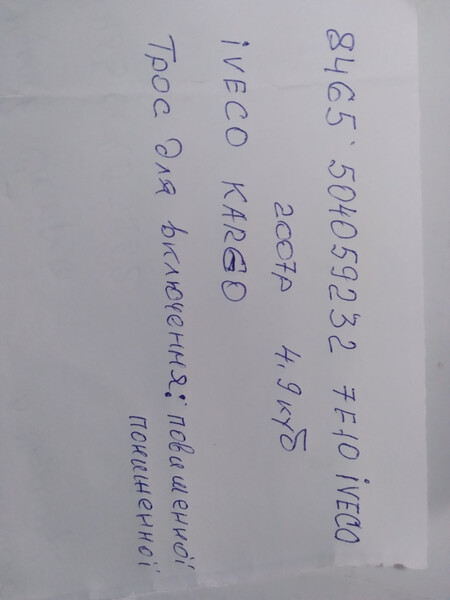 8465 504059232 7E10 iVECO
2007р 4,9куб
iVECO KARGO
Трос для включення: повишенної
понишенної